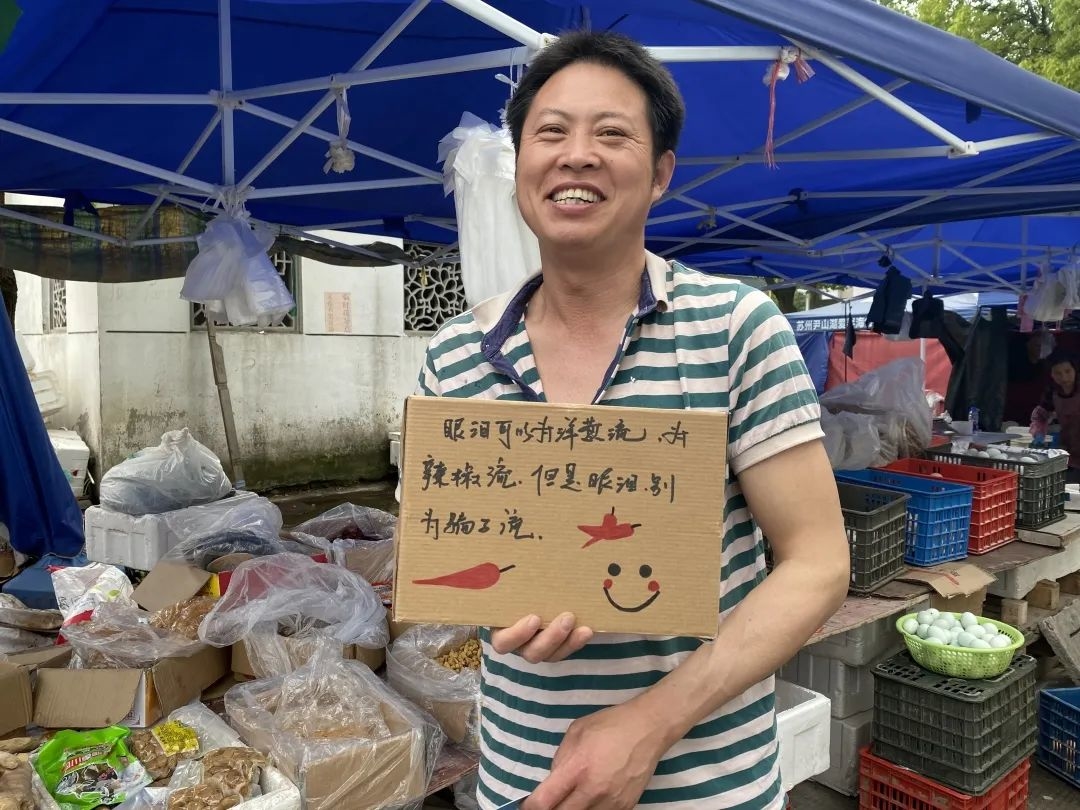 眼泪可以为洋葱流，为
辣椒流．但是眼泪别
为骗子流．